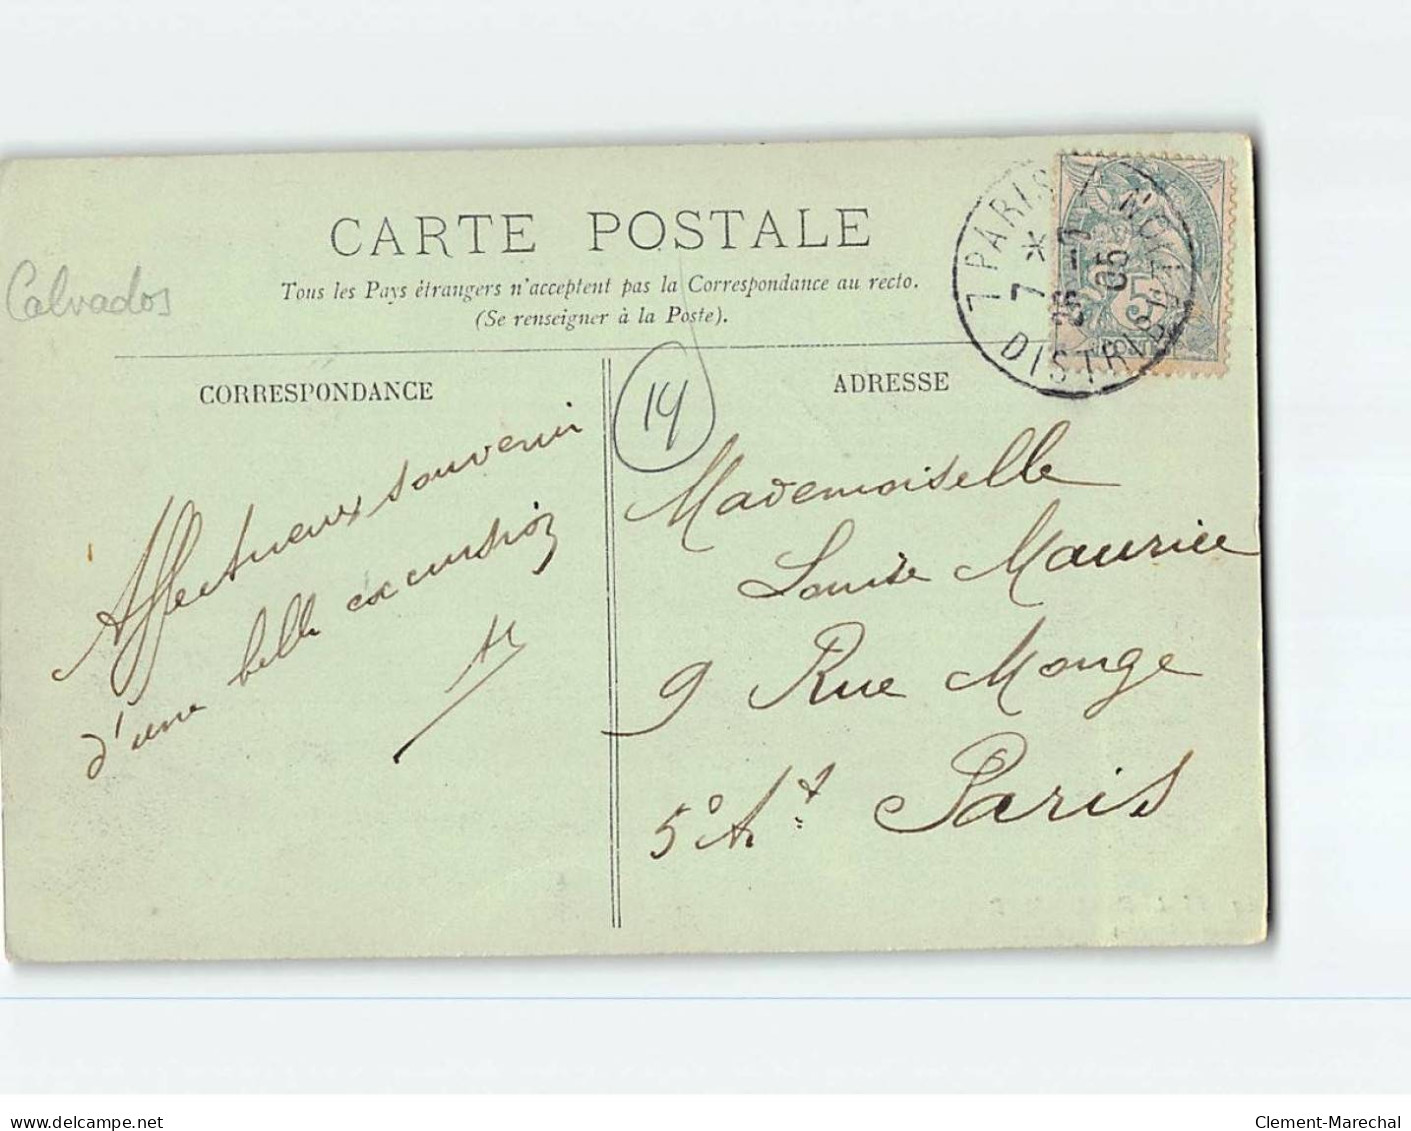 CARTE POSTALE
Tous les Pays étrangers n'acceptent pas la Correspondance au recto.
(Se renseigner à la Poste).
Calvados
CORRESPONDANCE
14
ADRESSE
PARIS
7 *
05
DISTRIBUTION
5
Affectueux souvenir
d'une belle excursion
Mademoiselle
Louise Maurice
9 Rue Monge
5e Art Paris
delcampe.net
Clement-Marechal